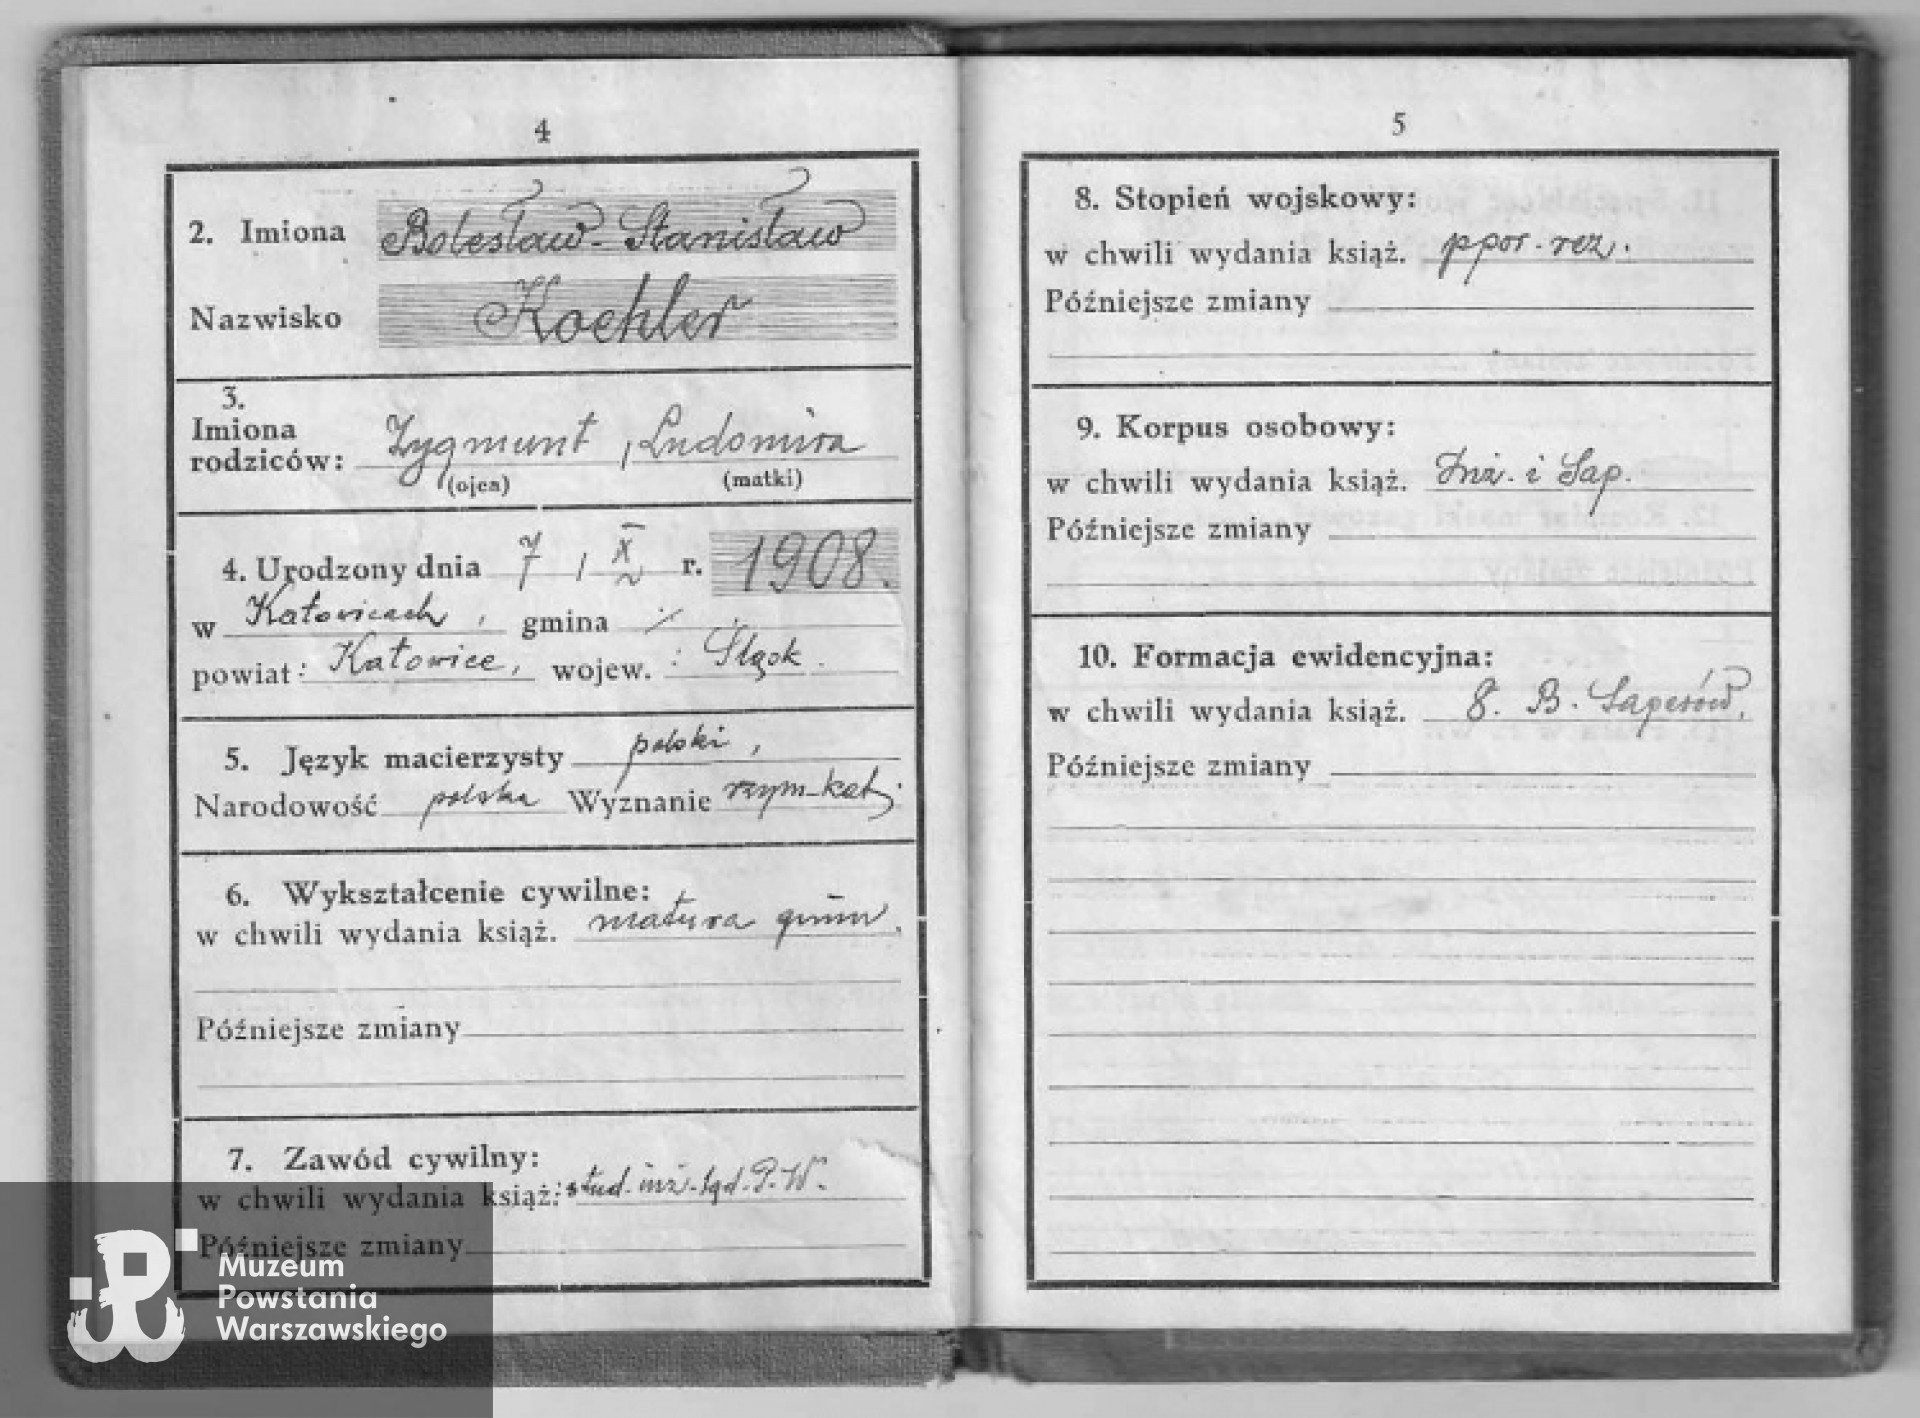 4
2. Imiona Bolesław-Stanisław
Nazwisko Koehler
3.
Imiona
rodziców: Zygmunt, Ludomira
(ojca) (matki)
4. Urodzony dnia 7 / X r. 1908.
w Katowicach, gmina ⁒
powiat: Katowice, wojew.: Śląsk.
5. Język macierzysty polski,
Narodowość polska Wyznanie rzym-kat.
6. Wykształcenie cywilne:
w chwili wydania książ. matura gimn.
Późniejsze zmiany
7. Zawód cywilny:
w chwili wydania książ: stud. inż. ląd. P.W.
Późniejsze zmiany
5
8. Stopień wojskowy:
w chwili wydania książ. ppor. rez.
Późniejsze zmiany
9. Korpus osobowy:
w chwili wydania książ. Inż. i Sap.
Późniejsze zmiany
10. Formacja ewidencyjna:
w chwili wydania książ. 8. B. Saperów.
Późniejsze zmiany
Muzeum
Powstania
Warszawskiego